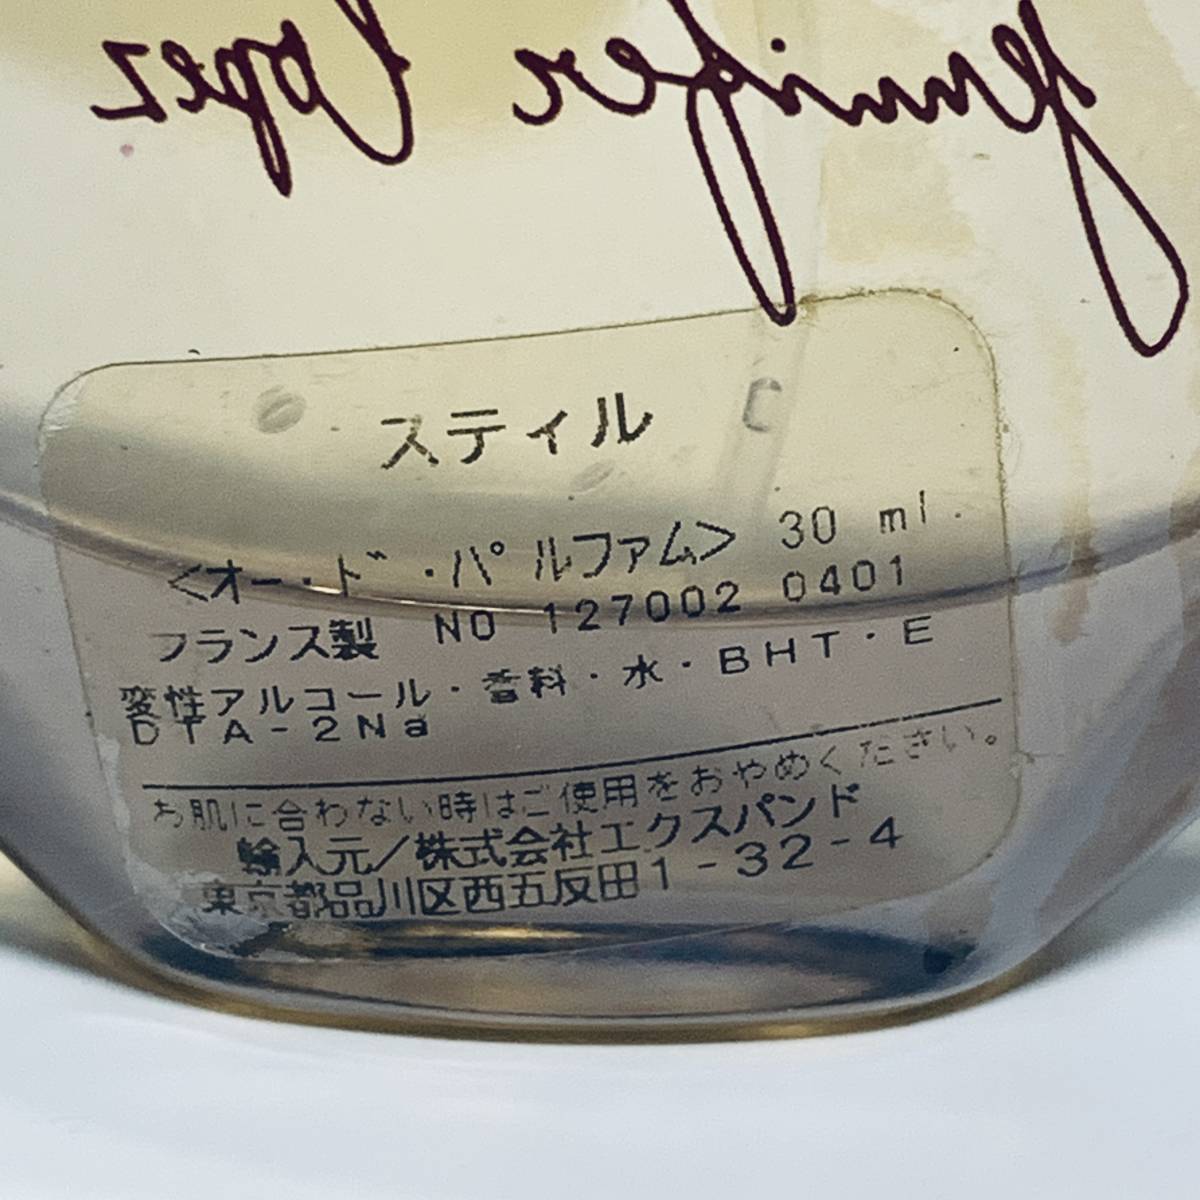 Jennifer Lopez
スティル
<オー・ド・パルファム> 30 ml.
フランス製 NO 127002 0401
変性アルコール・香料・水・BHT・E
DTA-2Na
お肌に合わない時はご使用をおやめください。
輸入元/株式会社エクスパンド
東京都品川区西五反田1-32-4